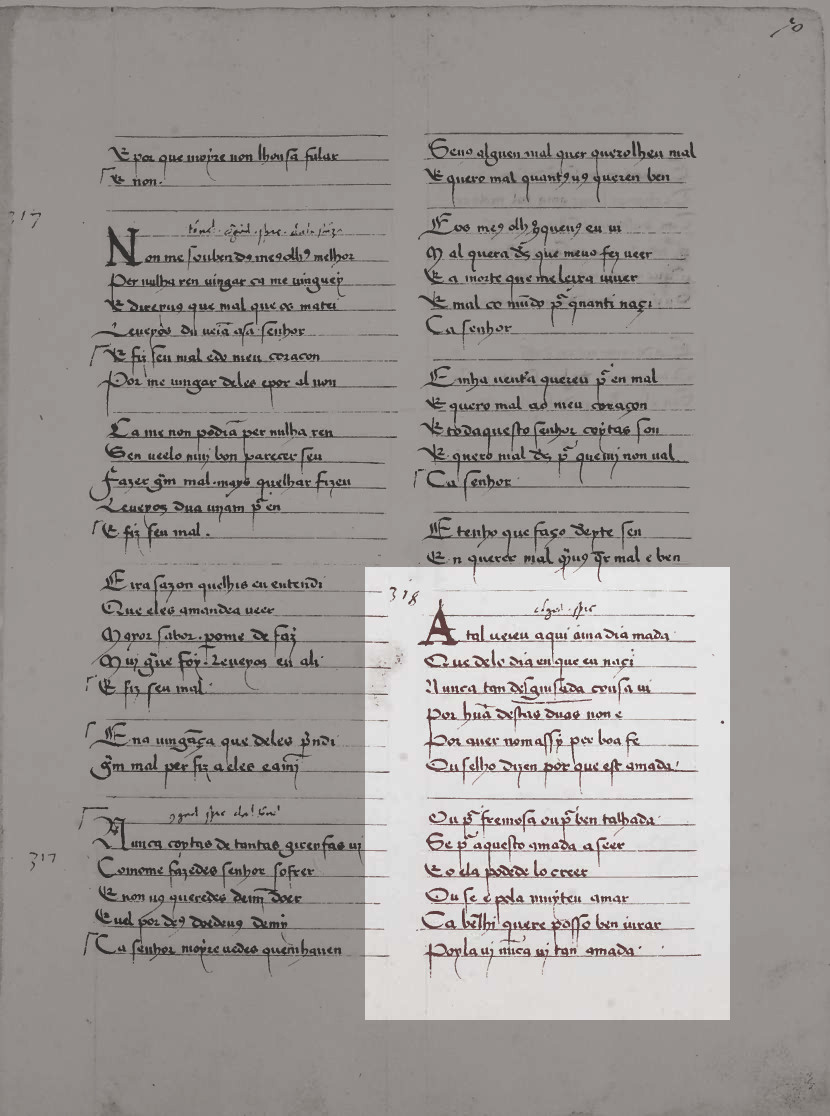 E por que moyre non lhousa falar
E non.
317
Non me soubendꝯ meꝯ olhꝯ melhor
Per nulha ren vingar ca me vinguey
E direyuꝯ que mal que os matei
Leueyos du ueiã asa senhor
E fiz seu mal e do meu coracon
Por me vingar deles e por al non
Ca me non podiã per nulha ren
Sen ueelo mui bon parecer seu
Fazer grm̃ mal mays quelhar fizeu
Leueyos du a uijam
E fiz seu mal.
E ira sazon quelhis eu entendi
Que eles amandea ueer
Mayor sabor. pome de faz
Leueyos en ali
E fiz seu mal
E na uingãça que deles p̃ndi
grm̃ mal per fiz a eles e amj
Nunca coytas de tantas guysas ui
Comome fazedes senhor sofrer
E non uꝯ queredes de doer
E uel por deꝯ doedeuꝯ demj
Ca senhor moyre uedes
317
Seno alguen mal quer querolheu mal
E quero mal quantꝯ uꝯ queren ben
Eos meꝯ olhꝯ eu ui
Mal quera dꝯ que meuo fez ueer
E a morte que me leixa uiuer
E mal co mũdo naçi
Ca senhor
E inha uent'a quereu mal
E quero mal ao meu coraçon
E todaquesto senhor coytas son
E quero mal dꝯ non ual
Ca senhor
E tenho que faço sen
En querer mal mal e ben
318
A tal ueieu aqui ama dia mada
Que delo dia en que eu naçi
Nunca tan desguisada cousa ui
por hũa destas duas non e
Por auer nomassy por boa fe
Ou selho dizen por que est amada.
Ou fremosa ou ben talhada
Se aquesto amada a seer
E o ela podede lo creer
Ou se e pola muyteu amar
Ca quere posso ben iurar
Poyla ui nũca ui tan amada